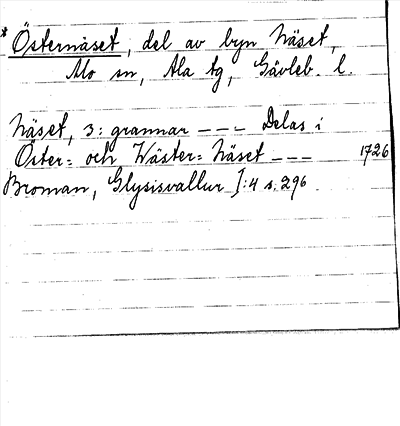 * Östernäset, del av byn Näset,
Mo sn, Ala tg, Gävleb. l.
Näset, 3: grannar --- Delas i
Öster= och Wäster= Näset --- 1726
Broman, Glysisvallur I:4 s. 296.